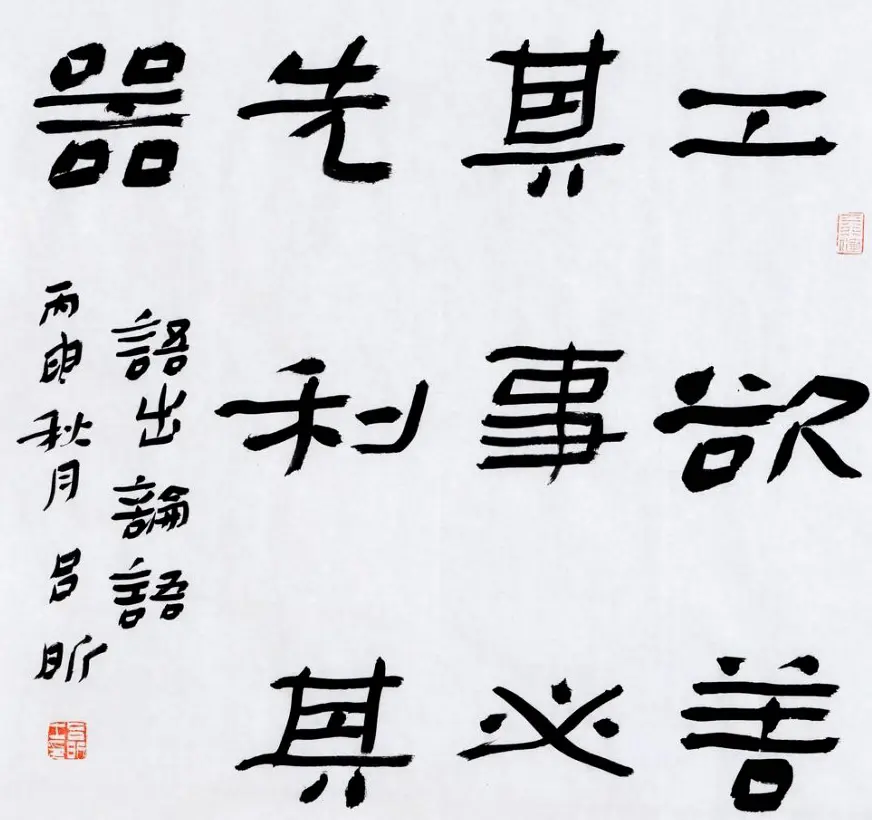 工欲善
其事必
先利其
器
語出論語
丙申秋月吕昕